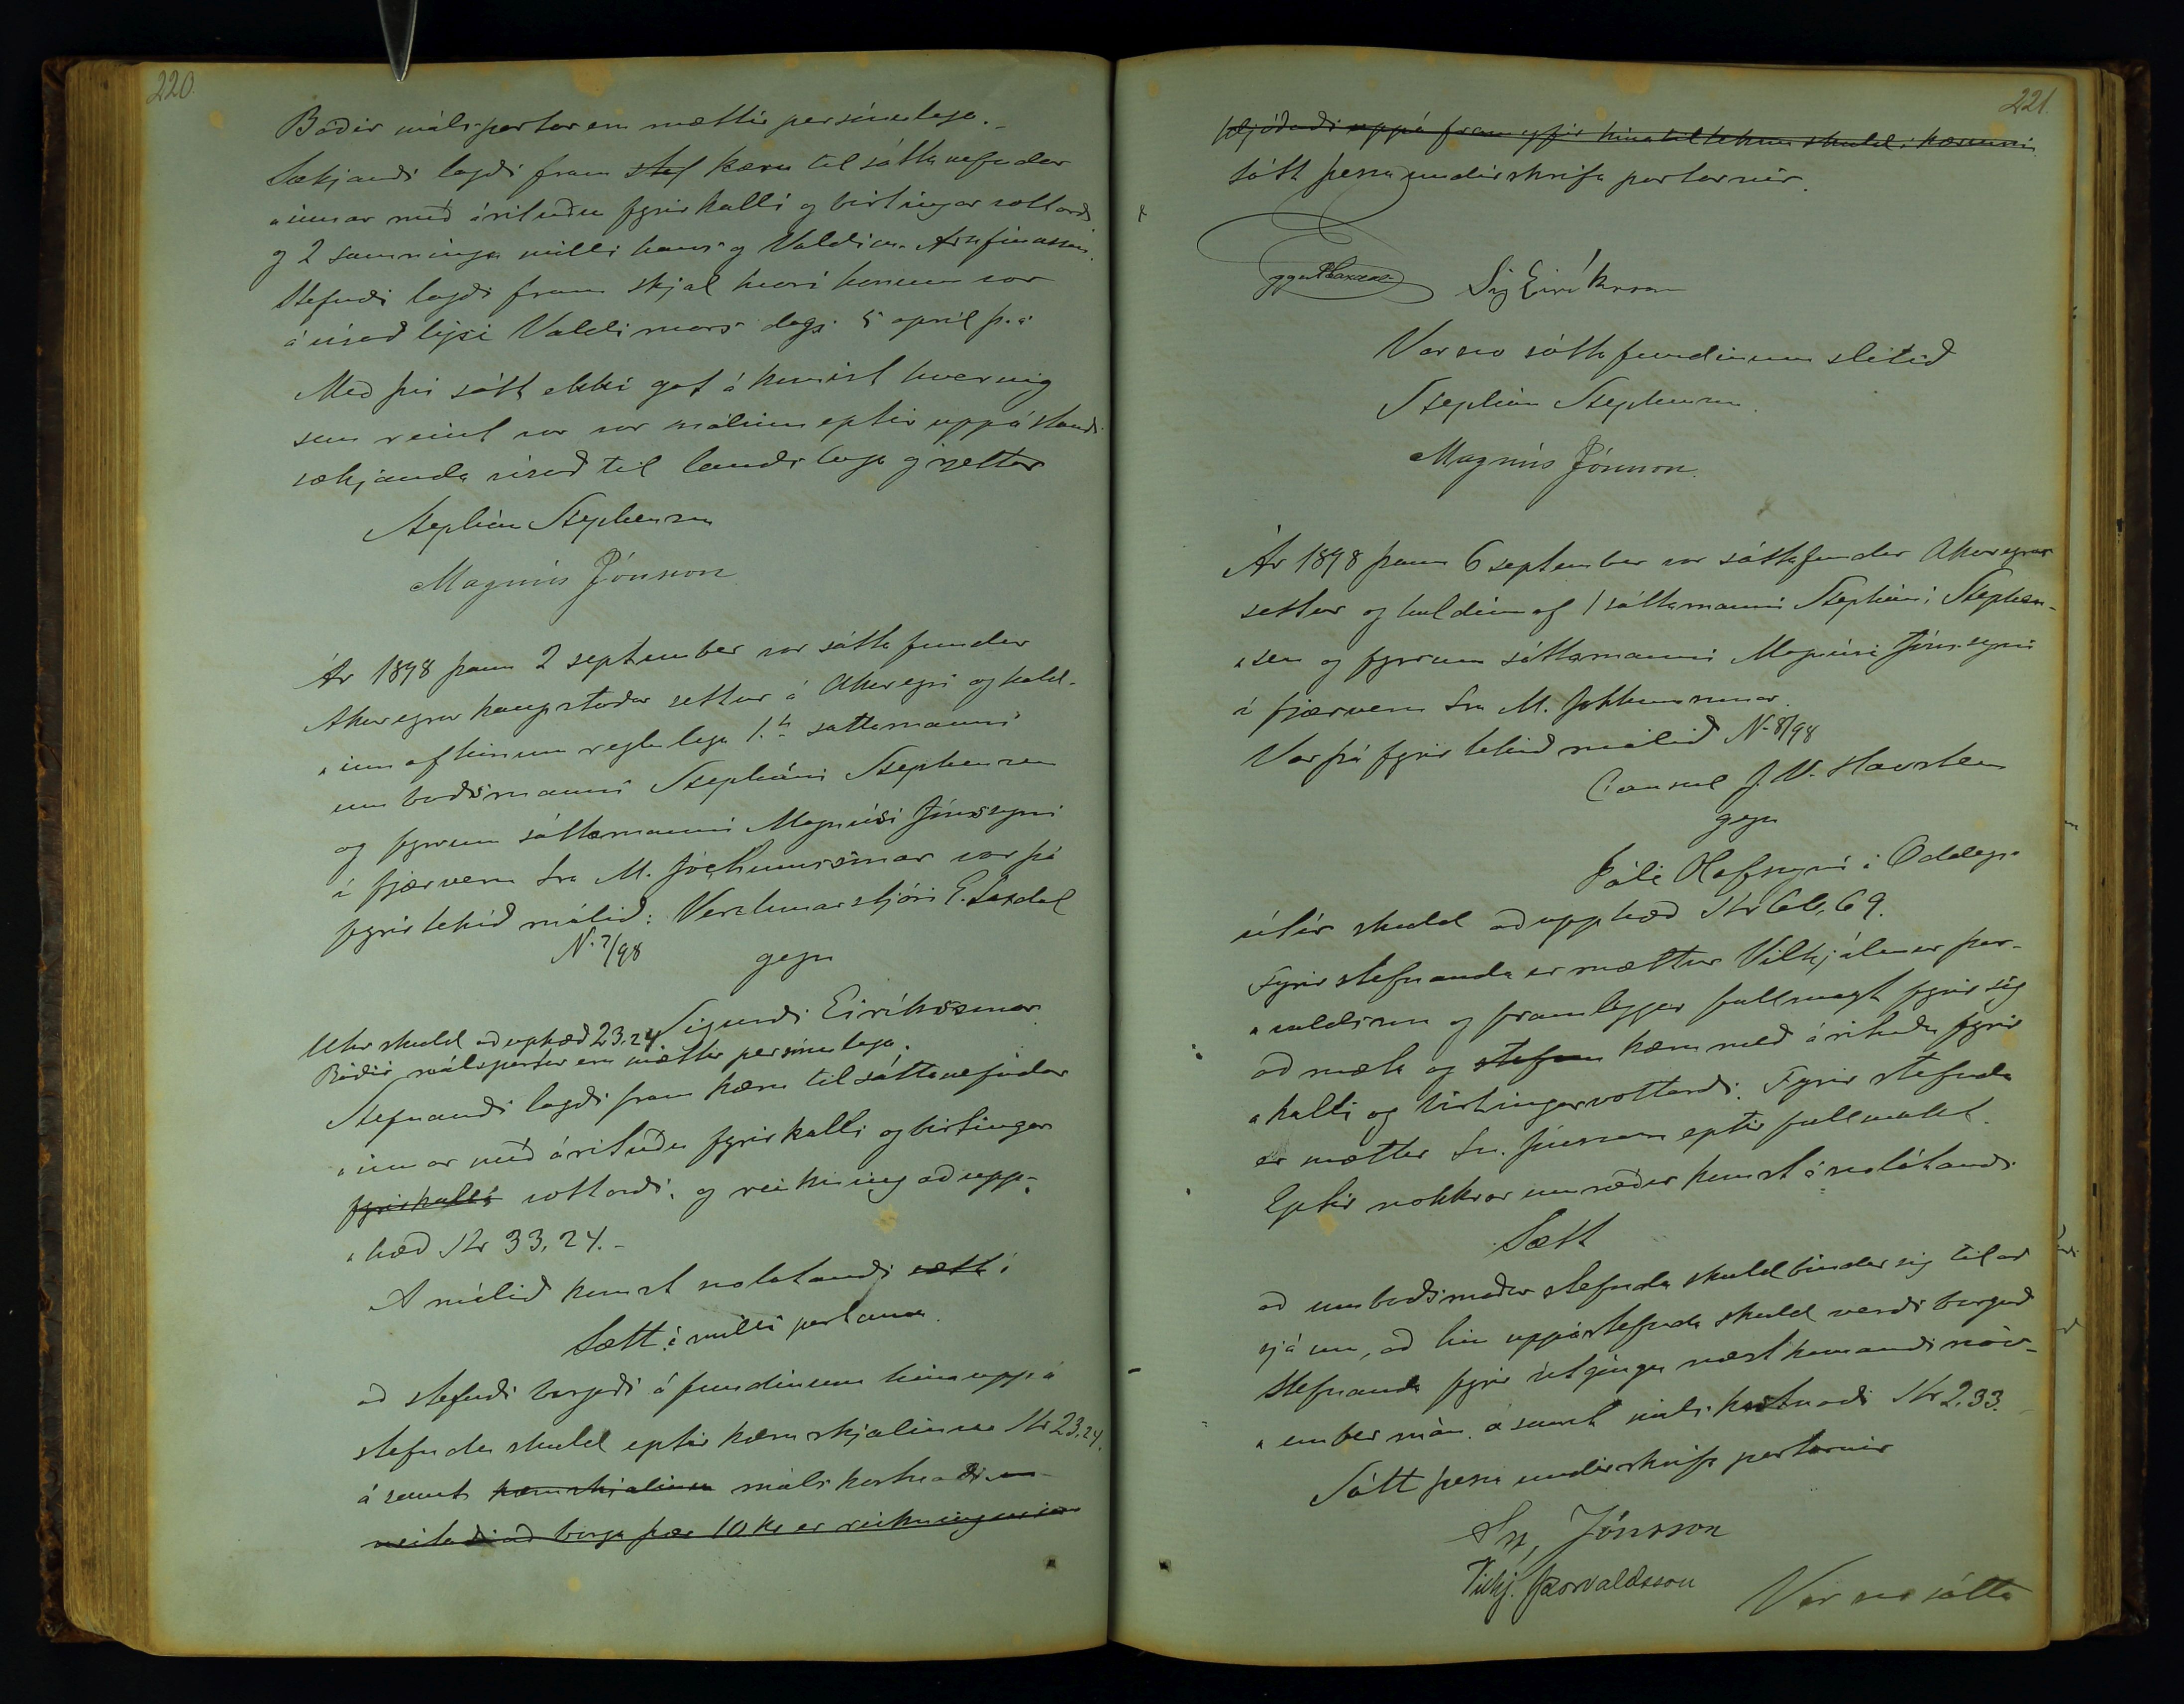 220.
Báðir málspartar eru mættir persónulega._
Sækjandi lagði fram ~~stef~~ kæru til sáttanefndar
"innar með árituðu fyrirkalli og birtingar vottorði
og 2 samninga milli hans og Valdim. Arnfinnssonar.
Stefndi lagði fram skjal hvori honum var
ávísað lýsi Valdimars dags. 5 april þ.á.
Með því sátt ekki gat á komist hvernig
sem reint var var málinu eptir uppástandi
sækjanda vísað til landslaga og rettar
Stephán Stephensen
Magnús Jónsson
Ár 1898 þann 2 september var sátta fundur
Akureyrar kaupstaðar settur á Akureyri og hald-
"inn af hinum reglulega 1. sáttamanni
umboðsmanni Stepháni Stephensen
og fyrrum sáttamanni Magnúsi Jónssyni
í fjærveru Sra M. Jochumssonar var þá
fyrirtekið málið: Verslunarstjóri E. Laxdal
N. 7/98 gegn
Sigurði Eiríkssynar
Utaf skuld að uphæð 23.24
Báðir málspartar eru mættir persónulega.
Stefnandi lagði fram kæru til sáttanefndar
"innar með árituðu fyrirkalli og birtingar
~~fyrirkalli~~ vottorði, og reikning að upp-
"hæð Kr 33,24.-
A málið komst svolatandi ~~sætt í~~
Sætt: á milli partana.
að stefndi borgaði á fundinum hina uppá
stefndu skuld eptir kæruskjalinu Kr 23.24.
ásamt ~~kæruskjalinu~~ málskostnaði ~~en~~
~~neitaði að borga þær 10 kr er reikningurinn~~
221.
~~hljóðaði uppá fram yfir hina tilteknu skuld í kærunni.~~
Sátt þessa undirskrifa partarnir.
Eggert Laxdal
Sig Eiríksson
Var svo sáttafundinum slitið
Stephán Stephensen.
Magnús Jónsson.
Ár 1898 þann 6 september var sáttafundur Akureyrar
settur og haldinn af 1 sáttamanni Stepháni Stephen-
"sen og fyrrum sáttamanni Magnúsi Jónssyni
í fjærveru Sra M. Jokkumssonar.
Var þá fyrirtekið málið N. 8/98
Consul J. V. Havsteen
gegn
Páli Hafssyni á Oddeyri
útúr skuld að upphæð Kr 66,69.
Fyrir stefnanda er mættur Vilhjálmur Þor-
"valdsson og framleggur fullmagt fyrir sig
að mæta og ~~stefnu~~ kæru með árituðu fyrir
"kalli og birtingarvottorði. Fyrir stefnda
er mættur Sn. Jónsson eptir fullmakt.
Eptir nokkrar umræður komst á svolátandi
Sætt
að umboðsmaður stefnda skuldbindur sig til að
sjá um, að hin uppástefnda skuld verði borguð
Stefnanda fyrir útgöngu næstkomandi nóv-
"ember mán. ásamt málskostnaði Kr 2,33.
Sátt þessa undirskrifa partarnir
Sn, Jónsson
Vilhj. Þorvaldsson
Var svo sátta